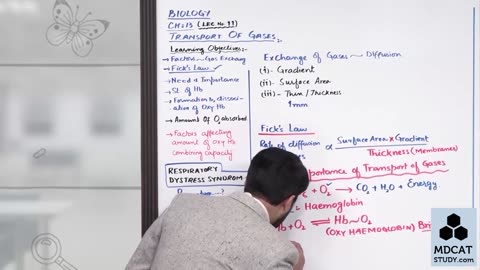 BIOLOGY
CH=13 (LEC No. 99)
TRANSPORT OF GASES
Learning Objectives:-
→ Factors ~ Gas Exchang
→ Fick's Law ✓
→ Need & Importance
→ St. of Hb
→ Formation & dissoci-
ation of Oxy Hb
→ Amount of O₂ absorbed
→ Factors affecting
amount of oxy Hb
combining capacity
RESPIRATORY
DYSTRESS SYNDROM
Exchange of Gases ~ Diffusion
(i)- Gradient
(ii)- Surface Area
(iii)- Thin / Thickness
1mm
Fick's Law
Rate of diffusion ∝ Surface Area × Gradient
Thickness (Membranes)
Importance of Transport of Gases
+ O₂ → CO₂ + H₂O + Energy
Haemoglobin
Hb + O₂ ⇌ Hb~O₂
(OXY HAEMOGLOBIN)
MDCAT
STUDY.com